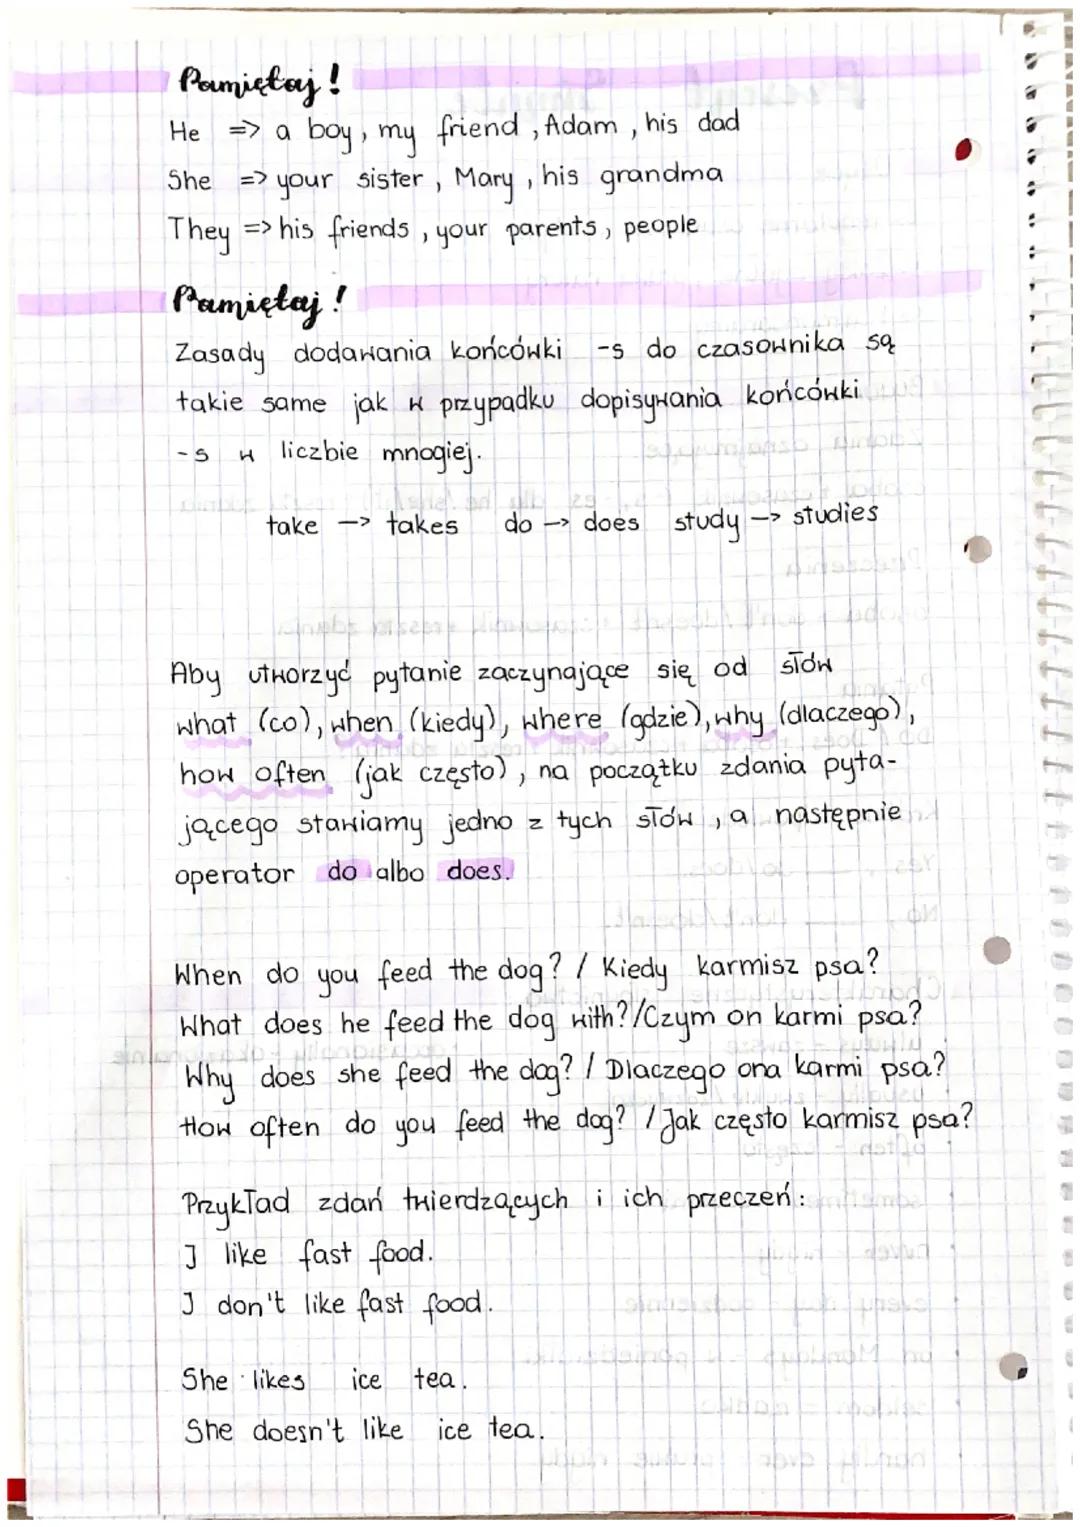 Pamiętaj!
He => a boy, my friend, Adam, his dad
She => your sister, Mary, his grandma
They => his friends, your parents, people
Pamiętaj!
Zasady dodawania końcówki -s do czasownika są
takie same jak w przypadku dopisywania końcówki
-s w liczbie mnogiej.
take -> takes do -> does study -> studies
Aby utworzyć pytanie zaczynające się od słów
what (co), when (kiedy), where (gdzie), why (dlaczego),
how often (jak często), na początku zdania pyta-
jącego stawiamy jedno z tych słów, a następnie
operator do albo does.
When do you feed the dog? / Kiedy karmisz psa?
What does he feed the dog with?/Czym on karmi psa?
Why does she feed the dog? / Dlaczego ona karmi psa?
How often do you feed the dog? / Jak często karmisz psa?
Przykład zdań twierdzących i ich przeczeń:
I like fast food.
I don't like fast food.
She likes ice tea.
She doesn't like ice tea.